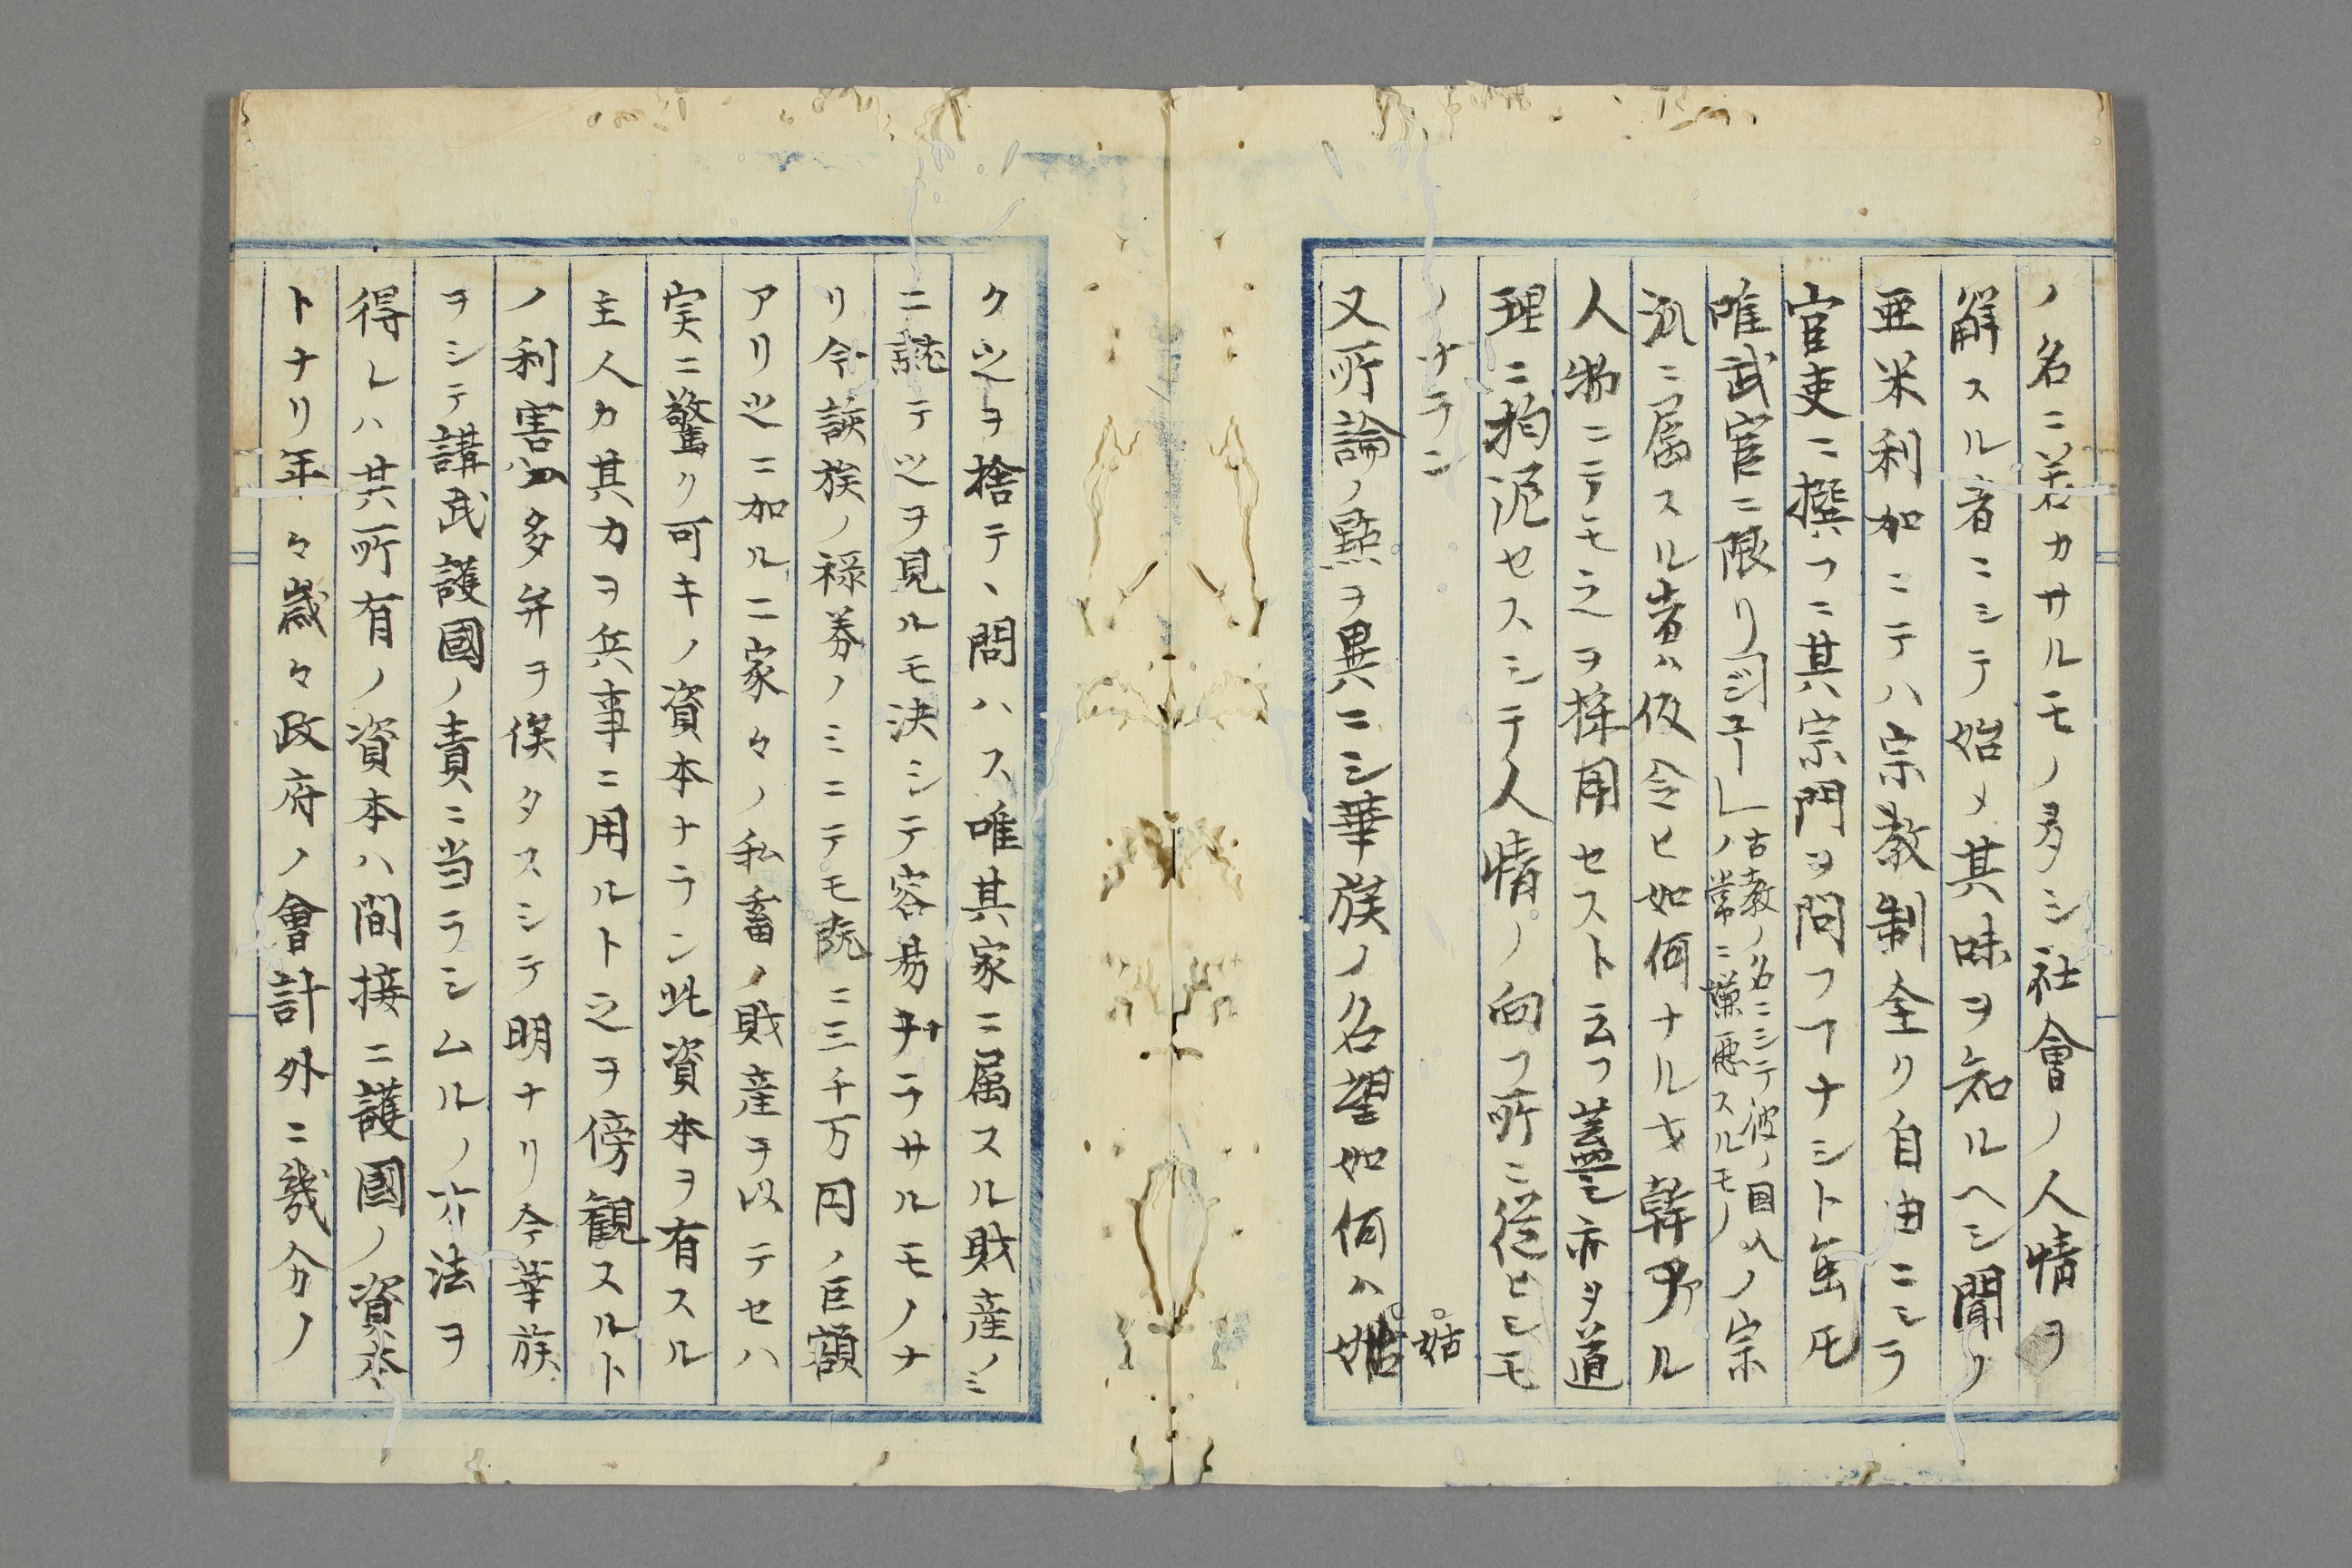 ノ名ニ若カサルモノ多シ社會ノ人情ヲ
解スル者ニシテ始メ其味ヲ知ルヘシ聞ク
亜米利加ニテハ宗教制全ク自由ニシテ
官吏ニ撰フニ其宗門ヲ問フフナシト𮈔𪜈
唯武官ニ限リ「ジユー」
古教ノ名ニシテ彼ノ國人
ノ常ニ嫌悪スルモノ
ノ宗
派ニ属スル者ハ仮令ヒ如何ナル才幹アル
人物ニテモ之ヲ採用セスト云フ蓋シ亦タ道
理ニ拘泥セスシテ人情ノ向フ所ニ従ヒシモ
ノナラン
又所論ノ點ヲ異ニシ華族ノ名望如何ハ姑
姑
ク之ヲ捨テ、問ハス唯其家ニ属スル財産ノミ
ニ就テ之ヲ見ルモ決シテ容易ナラサルモノナ
リ今該族ノ禄券ノミニテモ既ニ三千万円ノ巨額
アリ之ニ加ルニ家々ノ私蓄ノ財産ヲ以テセハ
実ニ驚ク可キノ資本ナラン此資本ヲ有スル
主人カ其力ヲ兵事ニ用ルト之ヲ傍観スルト
ノ利害多弁ヲ俟タスシテ明ナリ今華族
ヲシテ講武護國ノ責ニ当ラシムルノ方法ヲ
得レハ其所有ノ資本ハ間接ニ護國ノ資本
トナリ年々歳々政府ノ會計外ニ幾分ノ